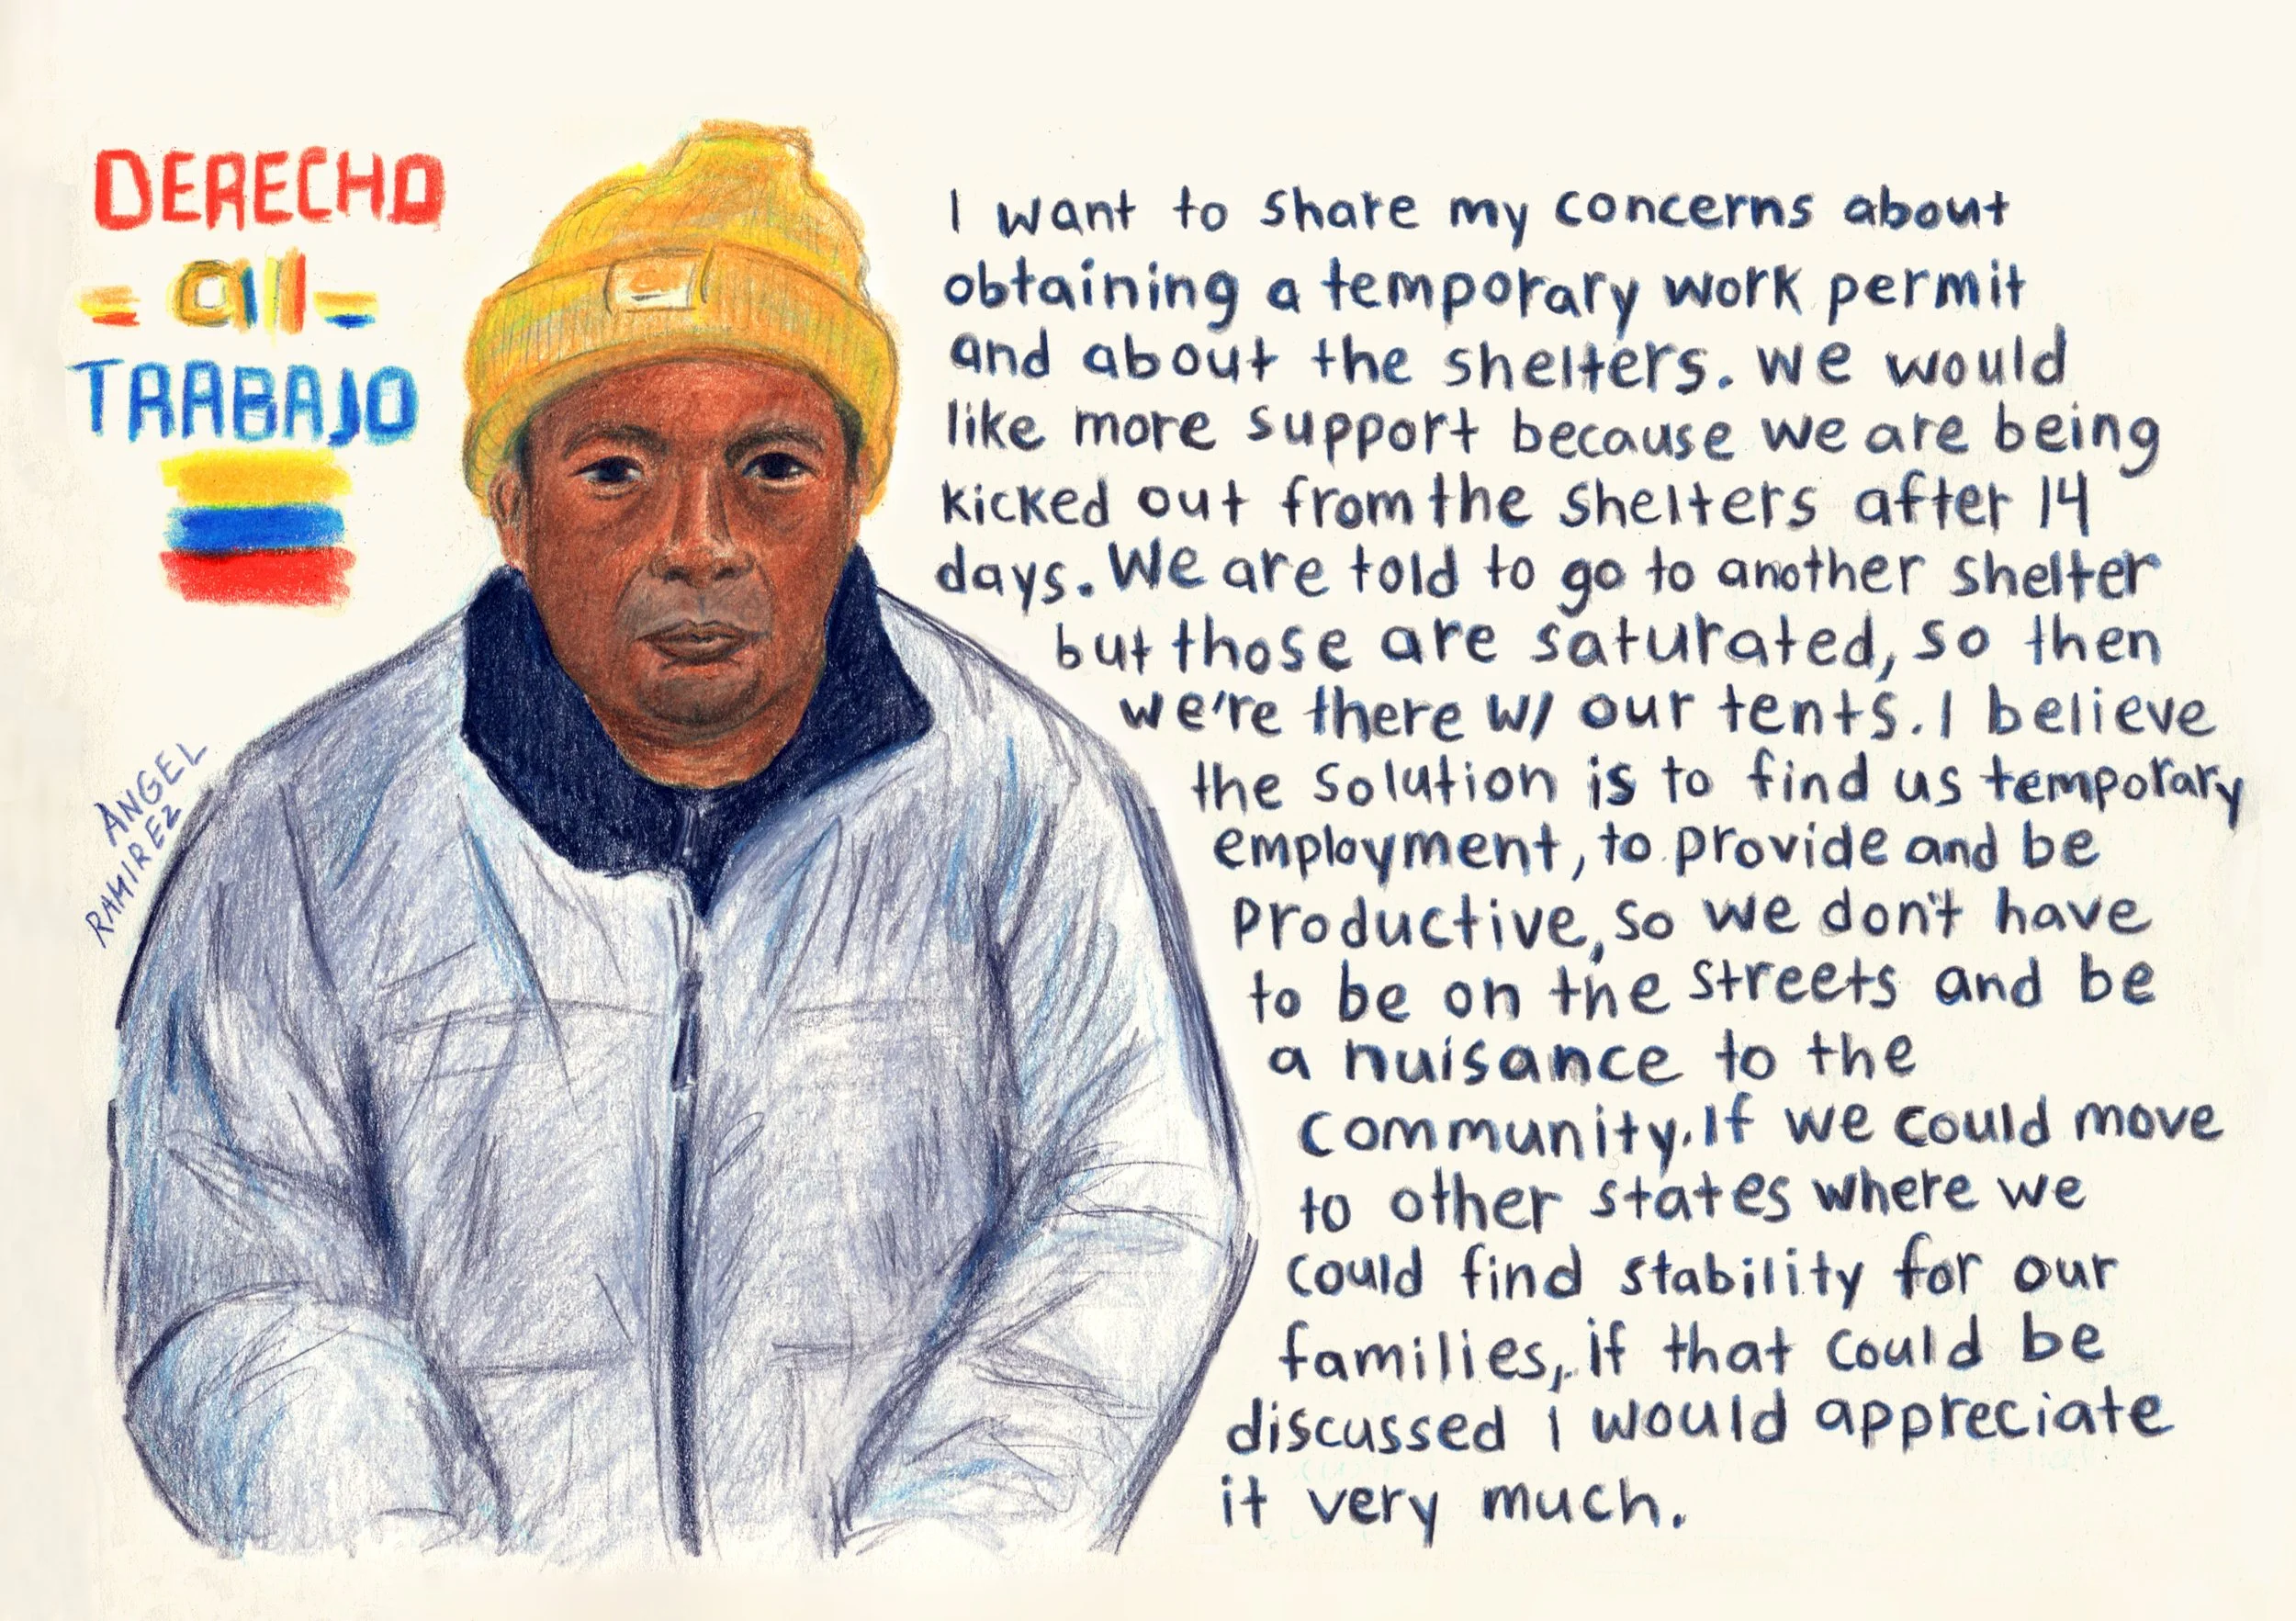 DERECHO
- al -
TRABAJO
ANGEL
RAMIREZ
I want to share my concerns about
obtaining a temporary work permit
and about the shelters. We would
like more support because we are being
kicked out from the shelters after 14
days. We are told to go to another shelter
but those are saturated, so then
we're there w/ our tents. I believe
the solution is to find us temporary
employment, to provide and be
productive, so we don't have
to be on the streets and be
a nuisance to the
community. If we could move
to other states where we
could find stability for our
families, if that could be
discussed I would appreciate
it very much.